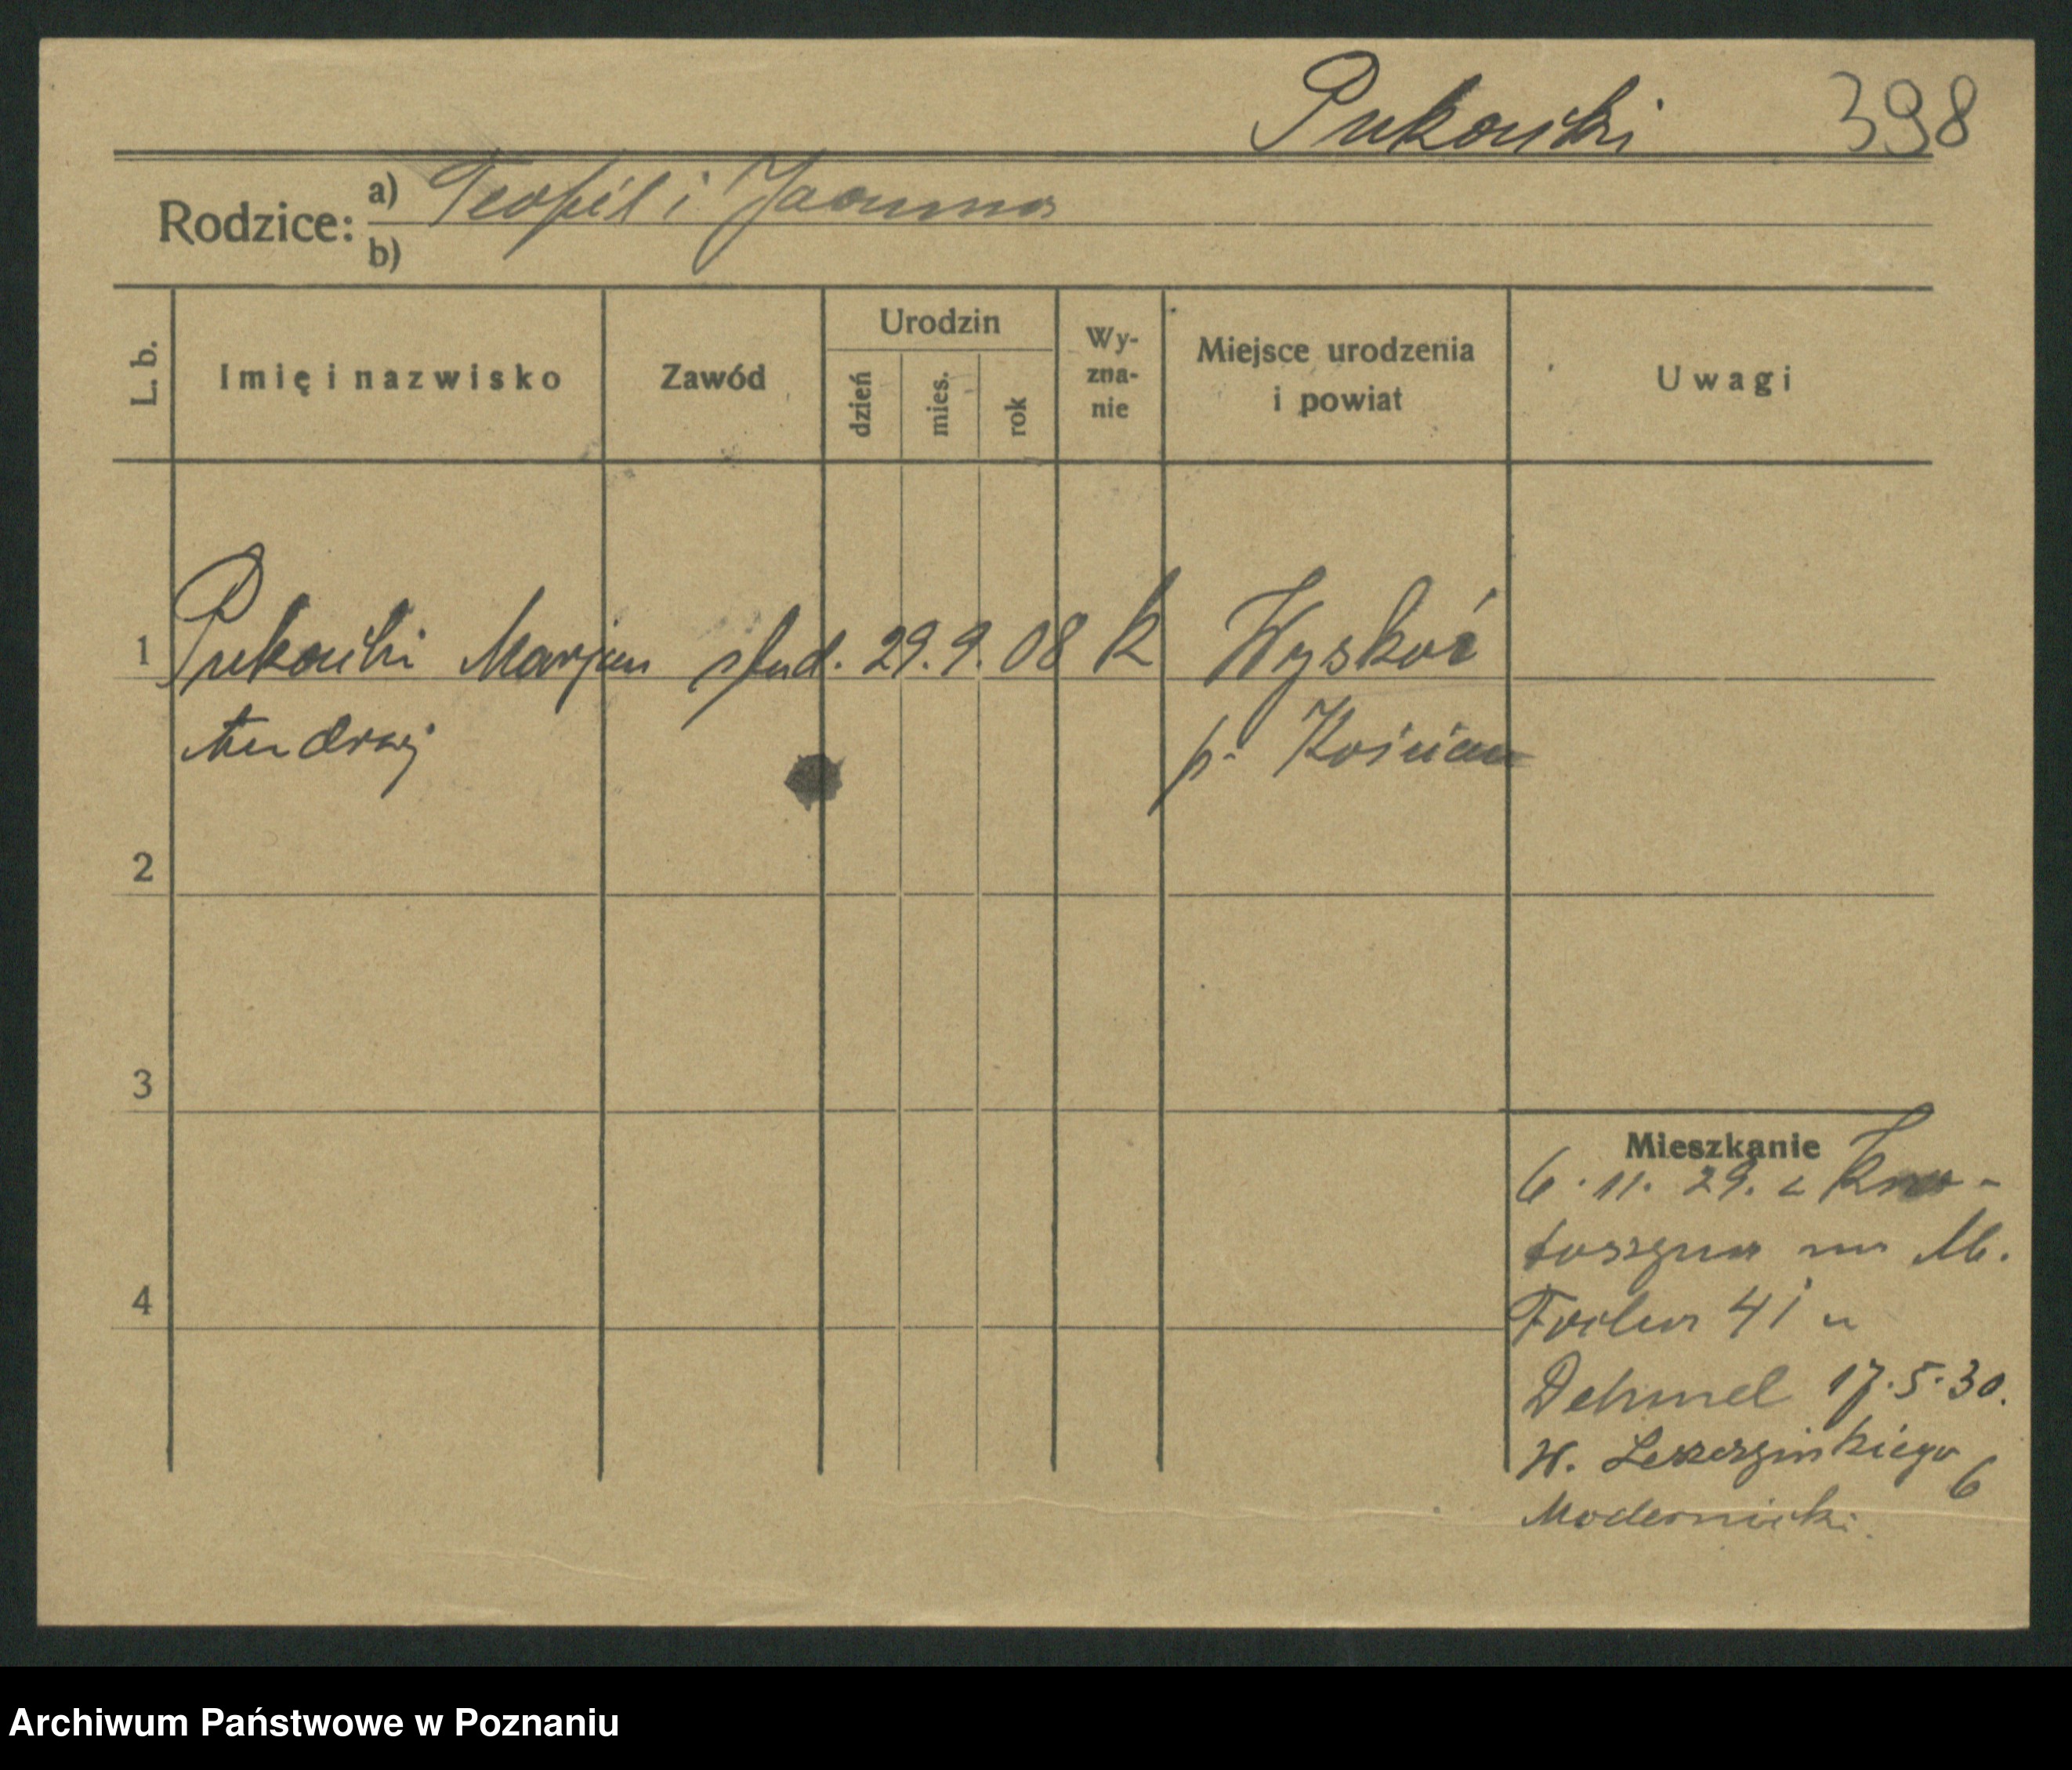 Pukowski 398
Rodzice: a) Teofil i Joanna
b)
L. b. Imię i nazwisko Zawód Urodzin dzień mies. rok Wy-zna-nie Miejsce urodzenia i powiat Uwagi
1 Pukowski Marjan stud. 29. 9. 08 k Wyskoć
Andrzej p. Kościan
2
3
4
Mieszkanie
6. 11. 29. z Kro-
toszyna na M.
Focha 41 u
Dehmel 17. 5. 30.
W. Leszczyńskiego 6
Modernicki.
Archiwum Państwowe w Poznaniu